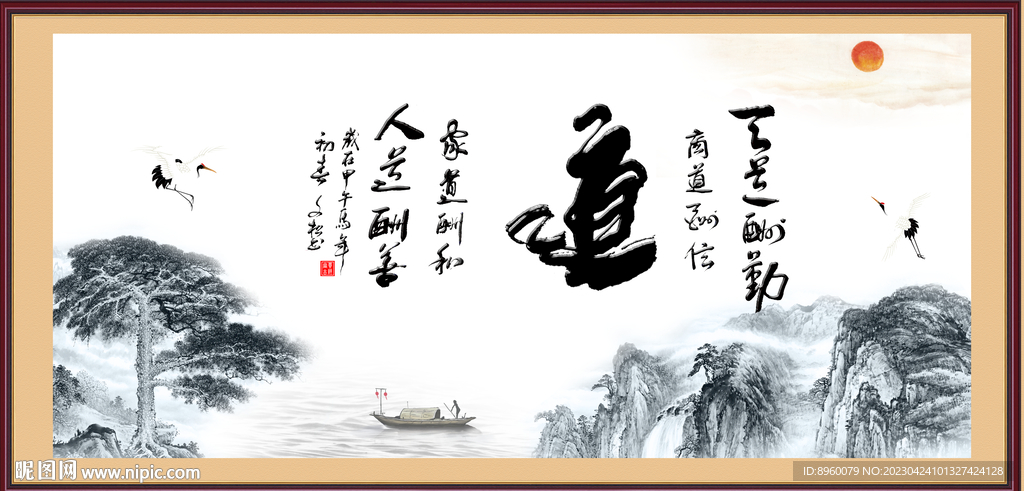 天道酬勤
商道酬信
道
家道酬和
人道酬善
岁在甲午马年
初春
昵图网 www.nipic.com
ID:8960079 NO:20230424101327424128